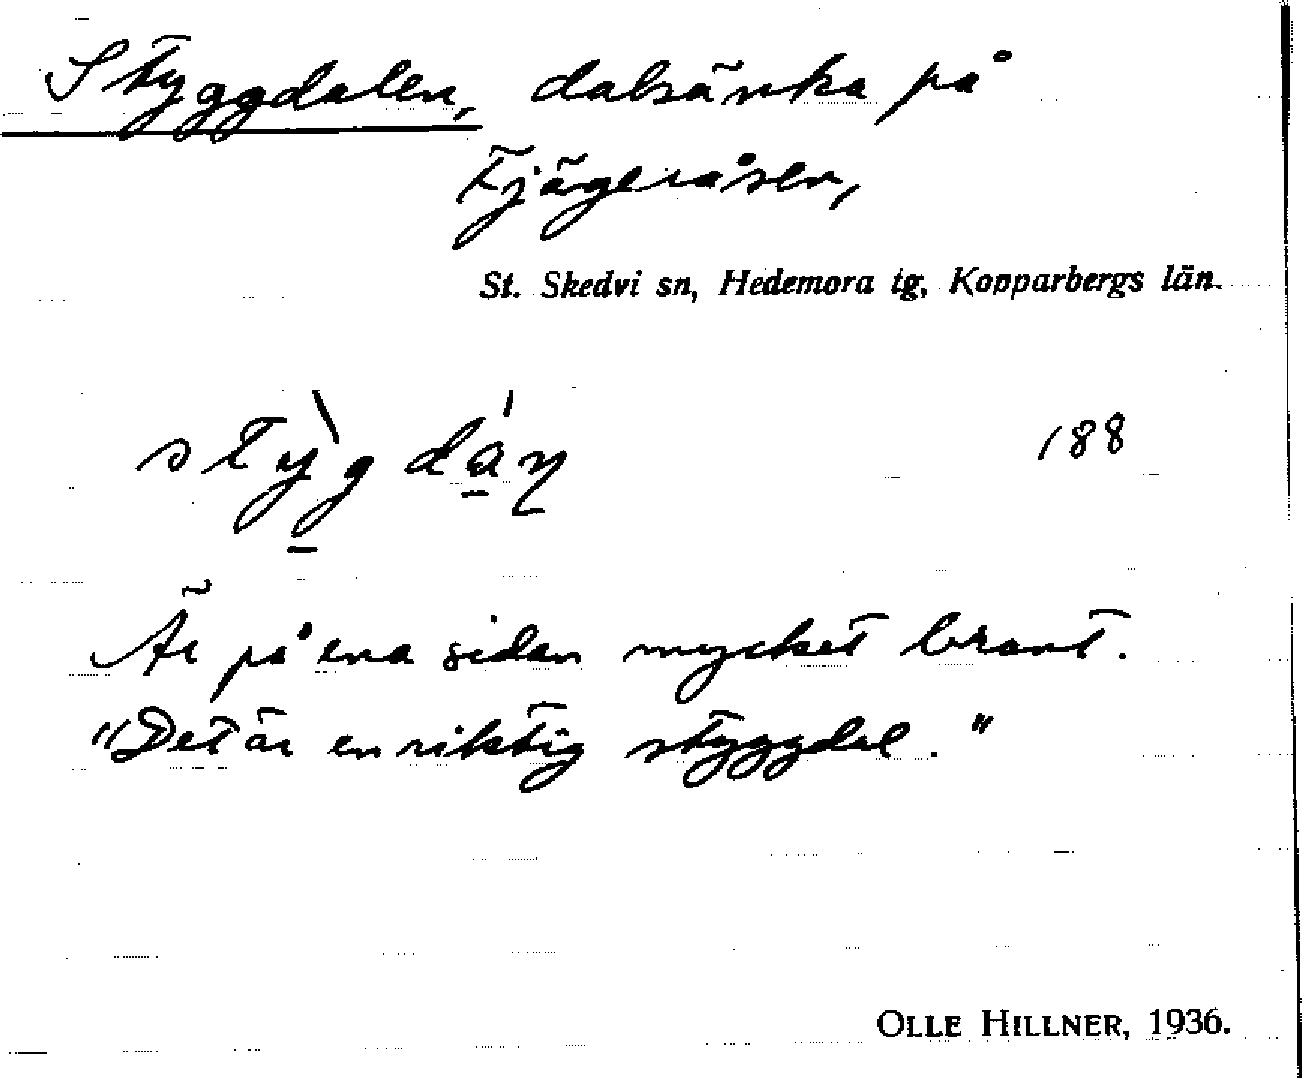 Styggdalen, dalsänka på
Fjägeråsen,
St. Skedvi sn, Hedemora tg, Kopparbergs län.
188
Är på ena sidan mycket brant.
"Det är en riktig styggdal."
OLLE HILLNER, 1936.